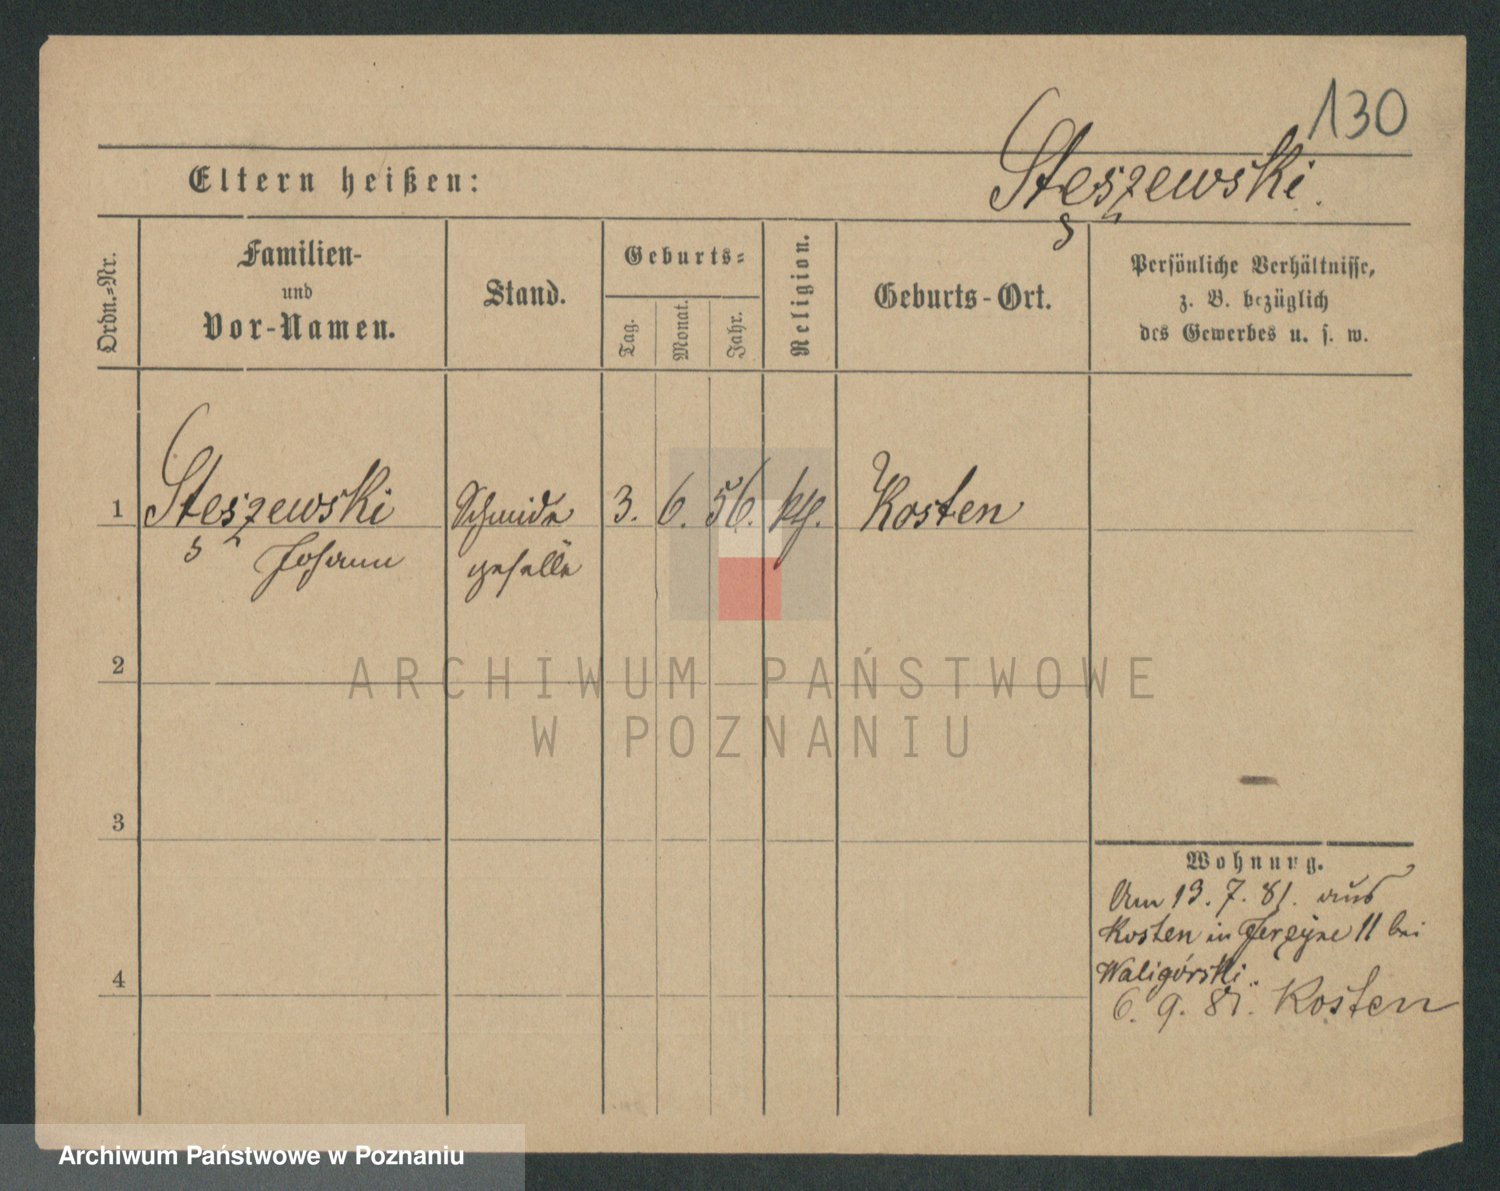 130
Steszewski.
s z
Eltern heißen:
Ordn.=Nr.
Familien-
und
Vor-Namen.
Stand.
Geburts=
Tag.
Monat.
Jahr.
Religion.
Geburts-Ort.
Persönliche Verhältnisse,
z. B. bezüglich
des Gewerbes u. s. w.
1 Steszewski Schmide 3. 6. 56. kth. Kosten
s z Johann geselle
2
ARCHIWUM PAŃSTWOWE
W POZNANIU
3
Wohnung.
Am 13. 7. 81. aus
Kosten in Jerzyce 11 bei
Waligórski.
4
6. 9. 81. Kosten
Archiwum Państwowe w Poznaniu